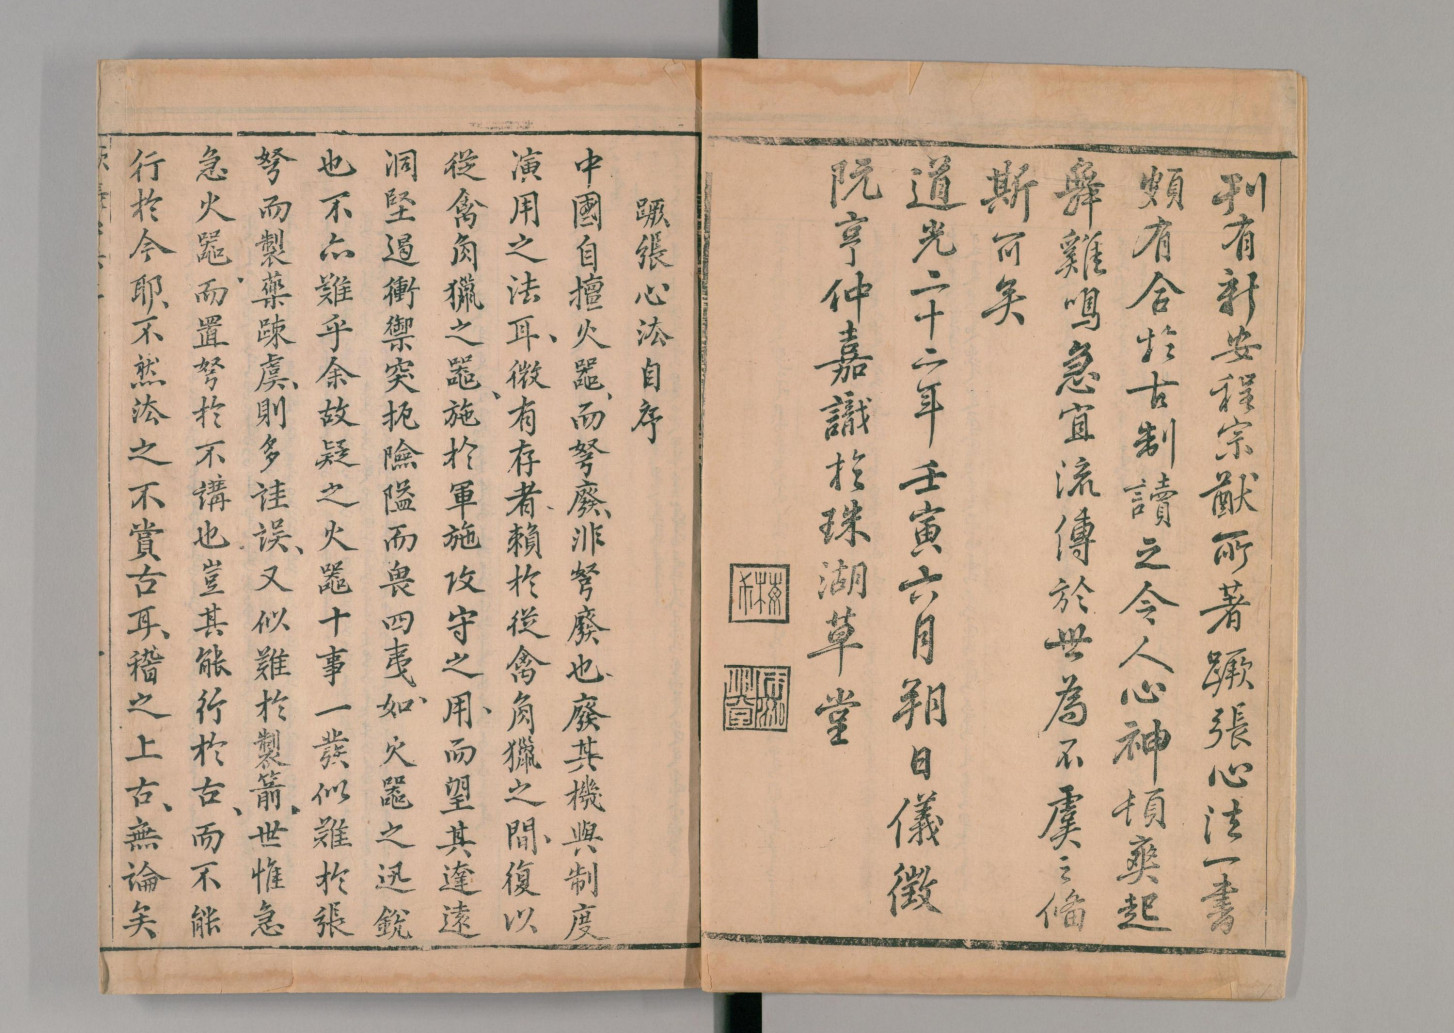 刊有新安程宗猷所著蹶張心法一書
頗有合於古制讀之令人心神頓爽起
舞雞鳴急宜流傳於世為不虞之備
斯可矣
道光二十二年壬寅六月朔日儀徵
阮亨仲嘉識於珠湖草堂
蹶張心法自序
中國自擅火器、而弩廢、非弩廢也、廢其機與制度
演用之法耳、微有存者、賴於從禽角獵之間、復以
從禽角獵之器、施於軍施攻守之用、而望其達遠
洞堅遏衝禦突扼險隘而畏四夷、如火器之迅銳
也不亦難乎余故疑之火器十事一發似難於張
弩而製藥疎虞、則多詿誤、又似難於製箭、世惟急
急火器、而置弩於不講也豈其能行於古、而不能
行於今耶、不然法之不賞古耳、稽之上古、無論矣